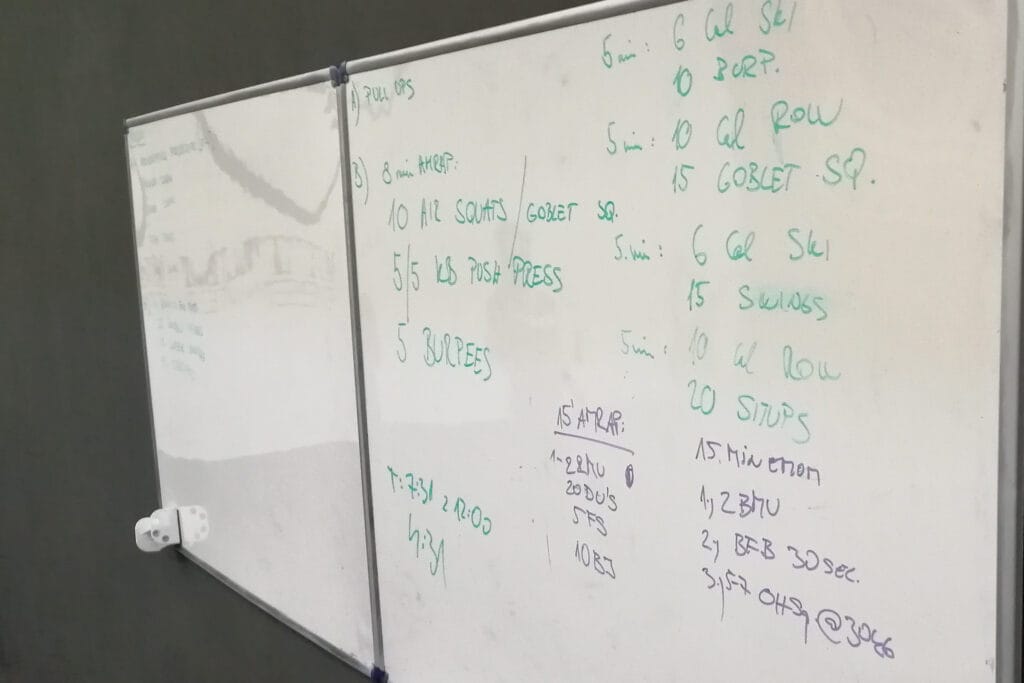 A) PULL UPS
B) 8 min AMRAP:
10 AIR SQUATS / GOBLET SQ.
5/5 KB PUSH PRESS
5 BURPEES
5 min: 6 Cal Ski
10 BURP.
5 min: 10 Cal ROW
15 GOBLET SQ.
5 min: 6 Cal Ski
15 SWINGS
5 min: 10 Cal Row
20 SITUPS
15' AMRAP:
1-2 BMU
20 DU'S
5 FS
10 BJ
15. MIN EMOM
1, 2 BMU
2, BFB 30 SEC.
3, 5-7 OHSq @30kg
7:31
12:00
4:31